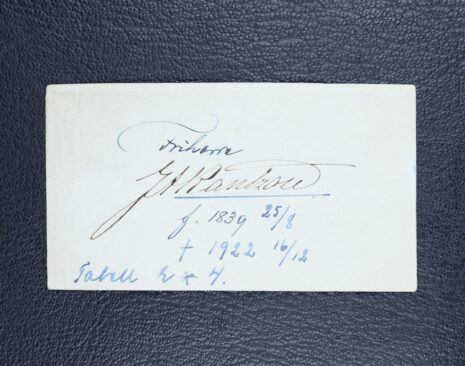 Friherre
J A Kantzow
f. 1839 25/8
† 1922 16/12
Tabell 2 * 4.